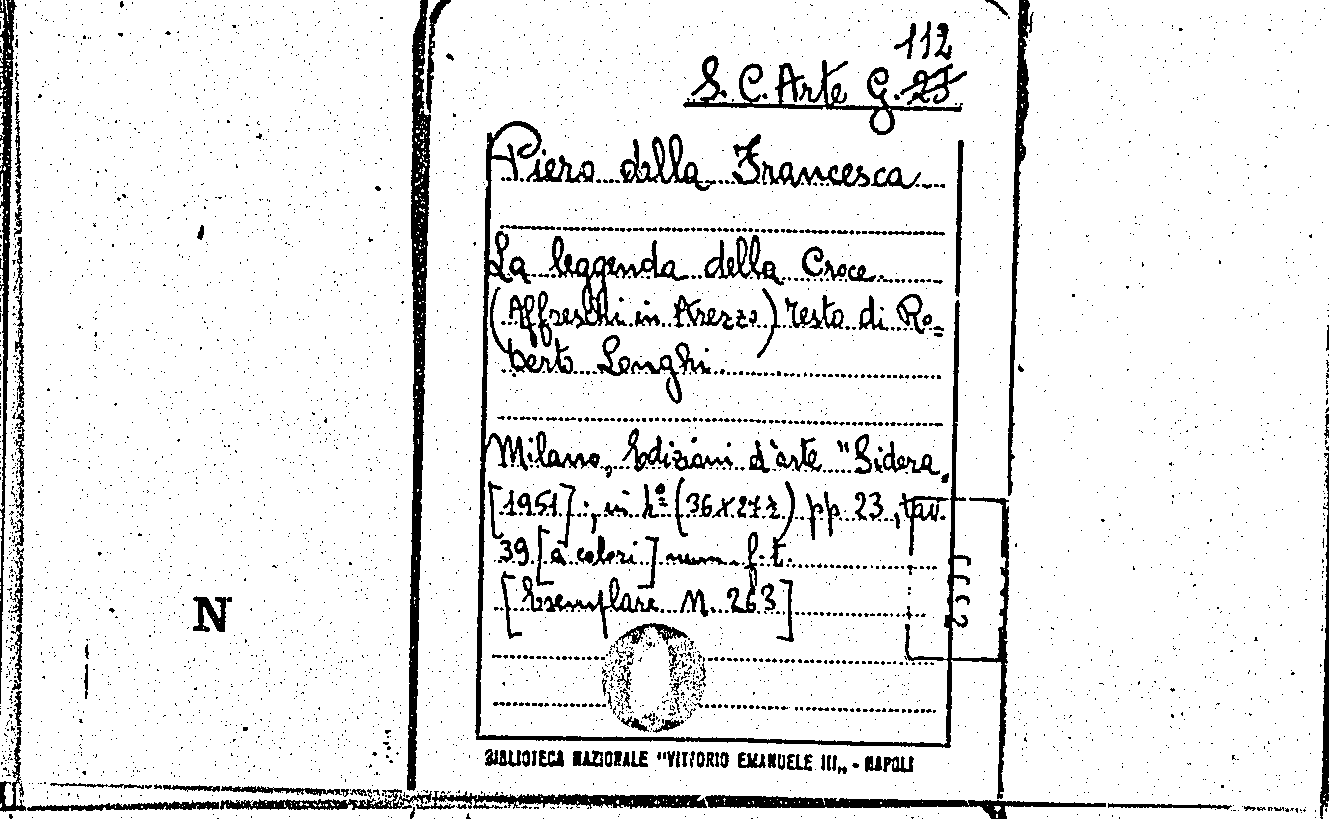 112
S. C. Arte G. 23
Piero della Francesca
La leggenda della Croce.
(Affreschi in Arezzo) Testo di Ro=
berto Longhi.
Milano, Edizioni d'arte "Sidera„
[1951]; in 4º (36x27½) pp 23, tav.
39 [a colori] num. f. t.
[Esemplare N. 263]
N
BIBLIOTECA NAZIONALE "VITTORIO EMANUELE III„ - NAPOLI